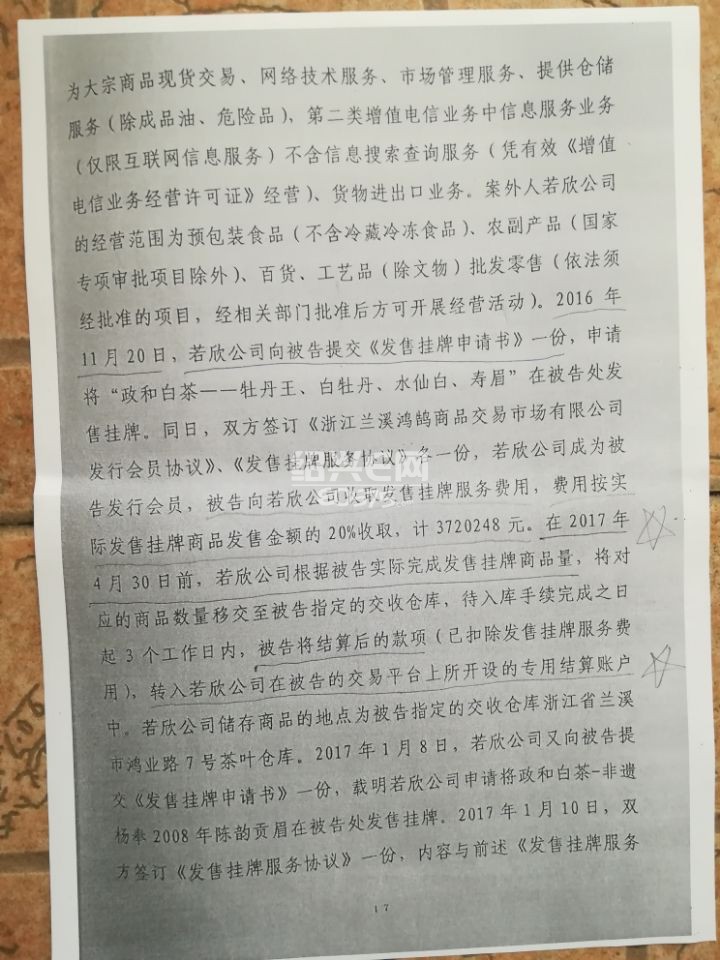 为大宗商品现货交易、网络技术服务、市场管理服务、提供仓储
服务（除成品油、危险品），第二类增值电信业务中信息服务业务
（仅限互联网信息服务）不含信息搜索查询服务（凭有效《增值
电信业务经营许可证》经营）、货物进出口业务。案外人若欣公司
的经营范围为预包装食品（不含冷藏冷冻食品）、农副产品（国家
专项审批项目除外）、百货、工艺品（除文物）批发零售（依法须
经批准的项目，经相关部门批准后方可开展经营活动）。2016 年
11 月 20 日，若欣公司向被告提交《发售挂牌申请书》一份，申请
将“政和白茶——牡丹王、白牡丹、水仙白、寿眉”在被告处发
售挂牌。同日，双方签订《浙江兰溪鸿鹄商品交易市场有限公司
发行会员协议》、《发售挂牌服务协议》各一份，若欣公司成为被
告发行会员，被告向若欣公司收取发售挂牌服务费用，费用按实
际发售挂牌商品发售金额的 20%收取，计 3720248 元。在 2017 年
4 月 30 日前，若欣公司根据被告实际完成发售挂牌商品量，将对
应的商品数量移交至被告指定的交收仓库，待入库手续完成之日
起 3 个工作日内，被告将结算后的款项（已扣除发售挂牌服务费
用），转入若欣公司在被告的交易平台上所开设的专用结算账户
中。若欣公司储存商品的地点为被告指定的交收仓库浙江省兰溪
市鸿业路 7 号茶叶仓库。2017 年 1 月 8 日，若欣公司又向被告提
交《发售挂牌申请书》一份，载明若欣公司申请将政和白茶-非遗
杨奉 2008 年陈韵贡眉在被告处发售挂牌。2017 年 1 月 10 日，双
方签订《发售挂牌服务协议》一份，内容与前述《发售挂牌服务
17